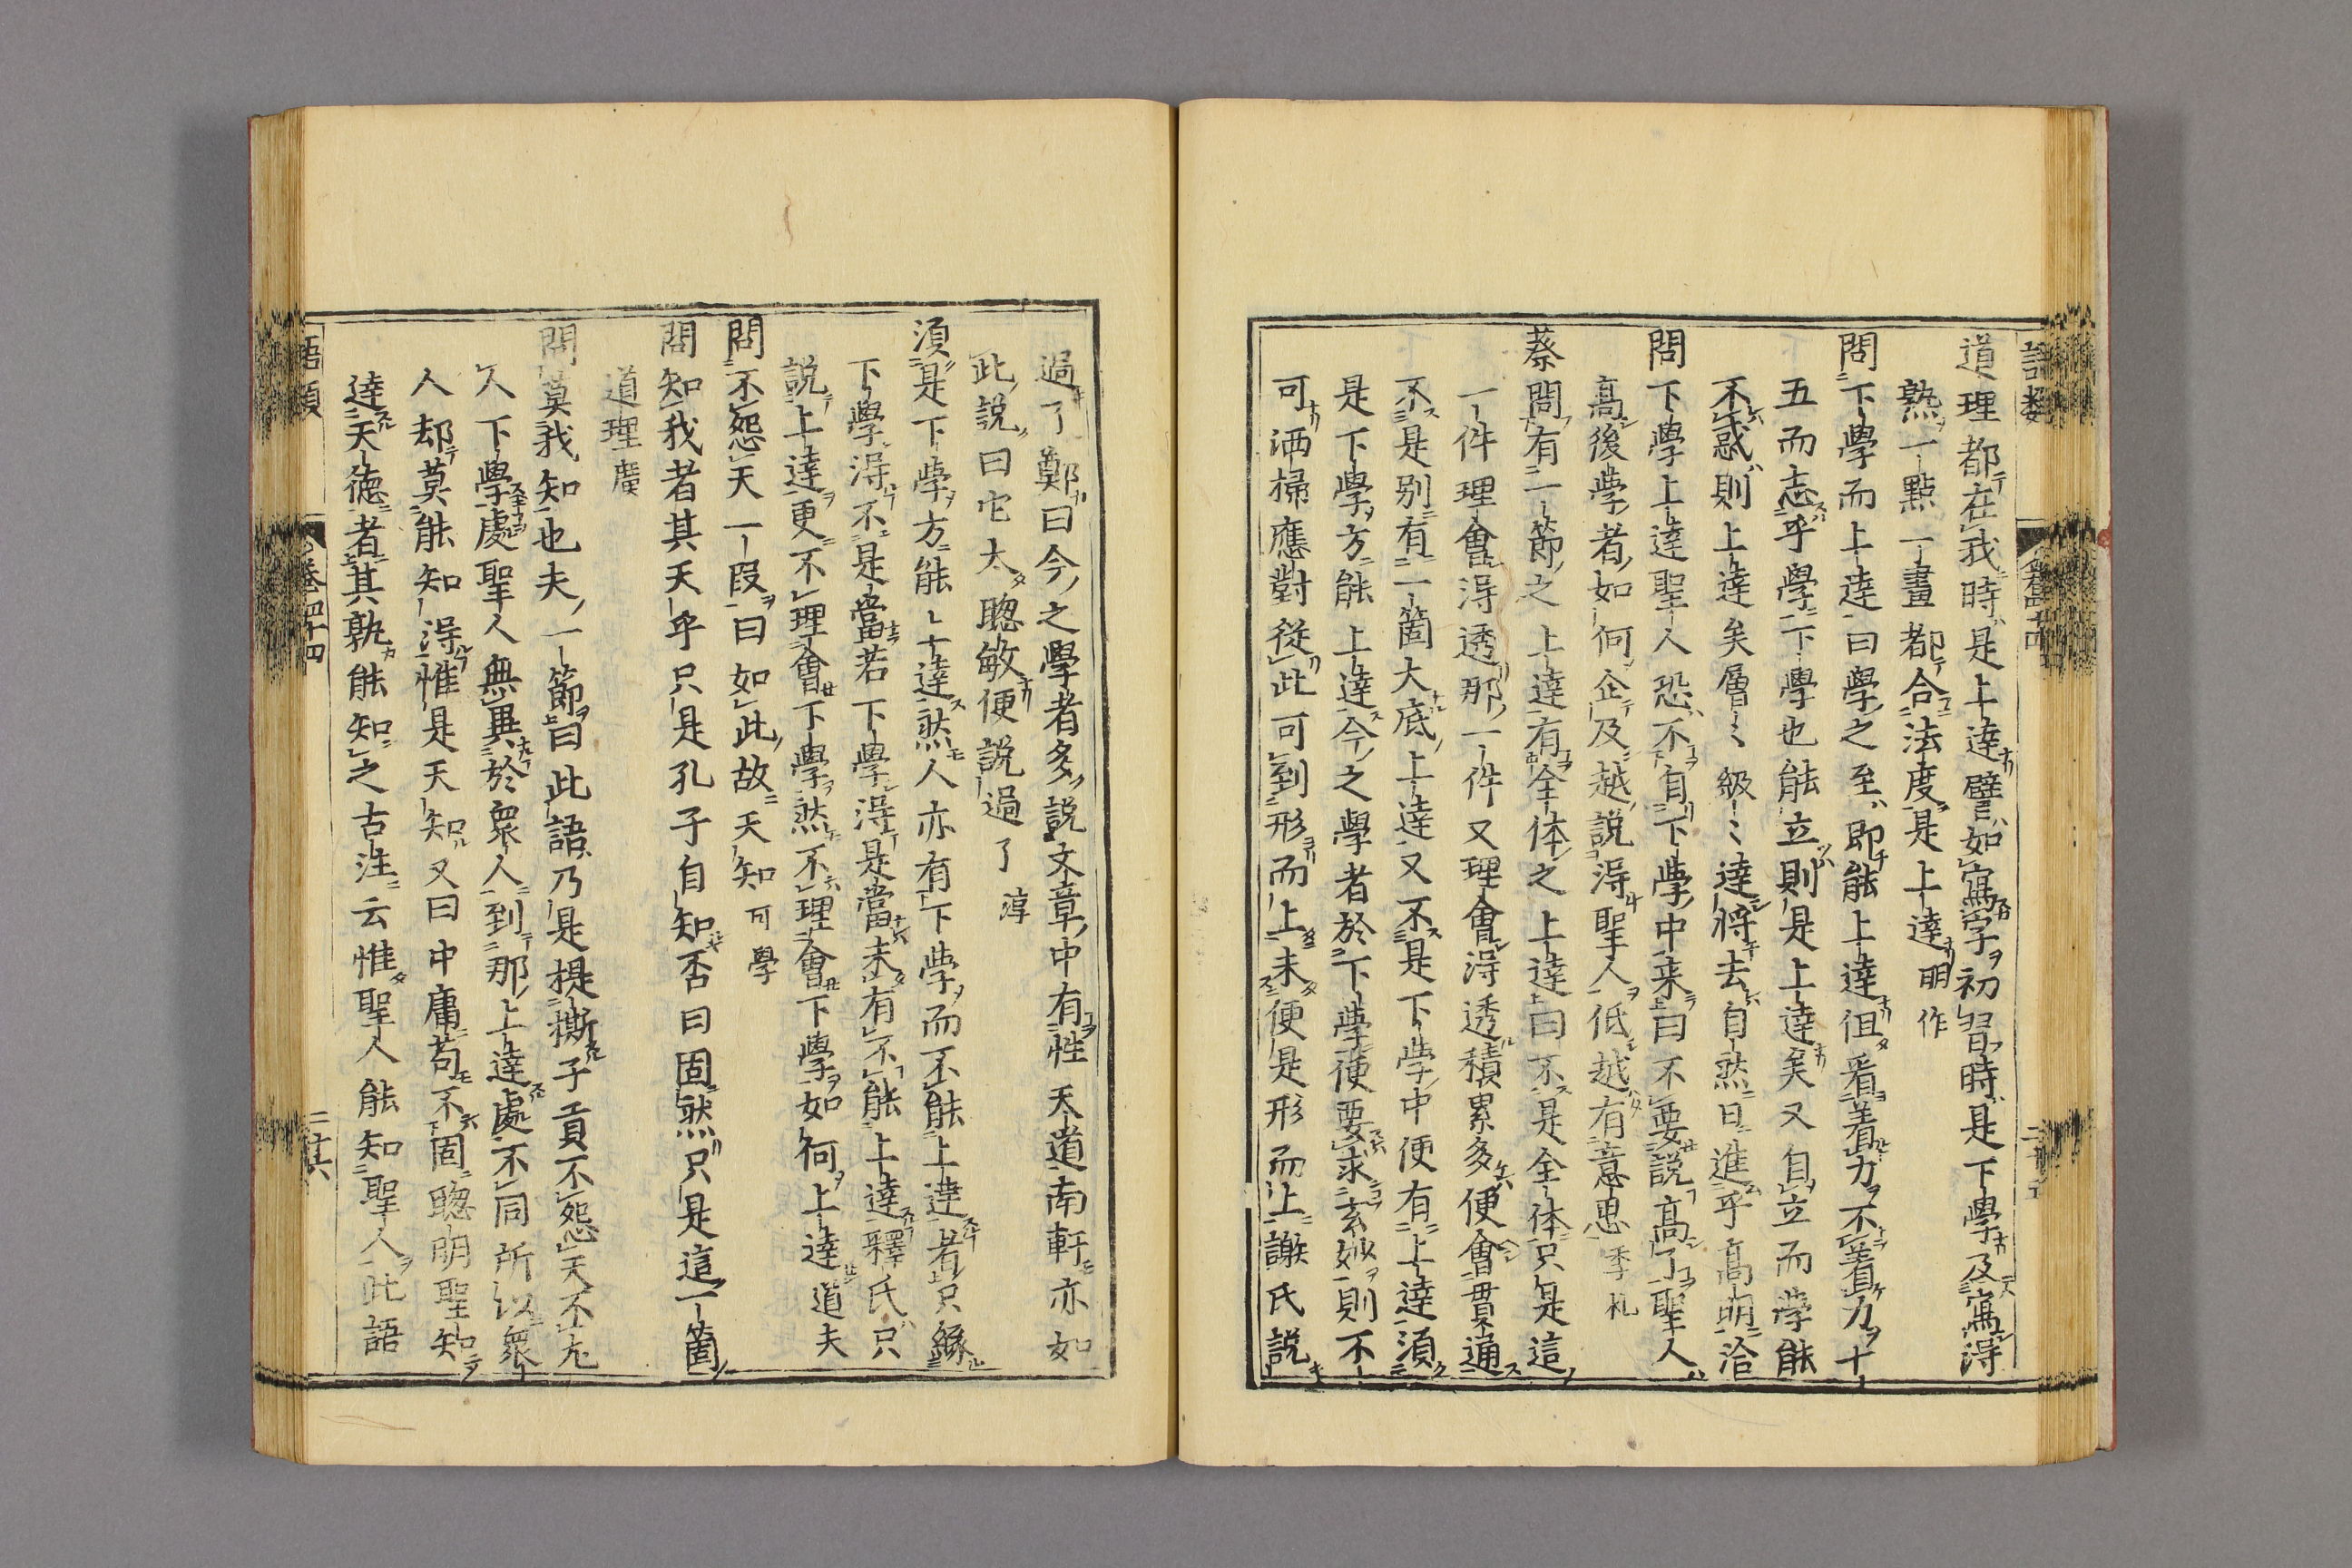 道理都在我時是上達譬如寫字初習時是下學及寫得
熟一點一畫都合法度是上達明作
問下學而上達曰學之至即能上達但看着力不着力十
五而志乎學下學也能立則是上達矣又自立而學能
不惑則上達矣層〻級〻達將去自然日進乎高明洽
問下學上達聖人恐不自下學中来曰不要說高了聖人
高後學者如何企及越說得聖人低越有意思季札
蔡問有一節之上達有全体之上達曰不是全体只是這
一件理會得透那一件又理會得透積累多便會貫通
不是別有一箇大底上達又不是下學中便有上達須
是下學方能上達今之學者於下學便要求玄妙則不
可洒掃應對從此可到形而上未便是形而上謝氏說
過了鄭曰今之學者多說文章中有性天道南軒亦如
此說曰它太聦敏便說過了淳
須是下學方能上達然人亦有下學而不能上達者只緣
下學得不是當若下學得是當未有不能上達釋氏只
說上達更不理會下學然不理會下學如何上達道夫
問不怨天一段曰如此故天知可學
問知我者其天乎只是孔子自知否曰固然只是這一箇
道理廣
問莫我知也夫一節曰此語乃是提撕子貢不怨天不尤
人下學處聖人無異於衆人到那上達處不同所以衆
人却莫能知得惟是天知又曰中庸苟不固聦明聖知
達天德者其孰能知之古注云惟聖人能知聖人此語
語類
卷四十四
二十六